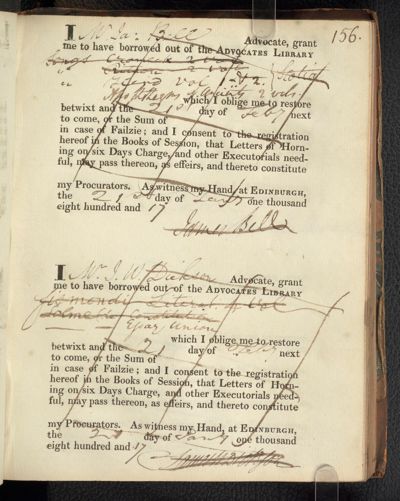 156.
I Mr Jas Bell Advocate, grant
me to have borrowed out of the Advocates Library
Vol 1 & 2
2 vols.
which I oblige me to restore
betwixt and the 21st day of Feby next
to come, or the Sum of
in case of Failzie; and I consent to the registration
hereof in the Books of Session, that Letters of Horn-
ing on six Days Charge, and other Executorials need-
ful, may pass thereon, as effeirs, and thereto constitute
my Procurators. As witness my Hand, at Edinburgh,
the 21st day of Jany one thousand
eight hundred and 17
James Bell
I Mr J. W. Dickson Advocate, grant
me to have borrowed out of the Advocates Library
Sismondi Literat. 4 Vol
Constitution
Union
which I oblige me to restore
betwixt and the 2 day of Feby next
to come, or the Sum of
in case of Failzie; and I consent to the registration
hereof in the Books of Session, that Letters of Horn-
ing on six Days Charge, and other Executorials need-
ful, may pass thereon, as effeirs, and thereto constitute
my Procurators. As witness my Hand, at Edinburgh,
the day of Jany one thousand
eight hundred and 17